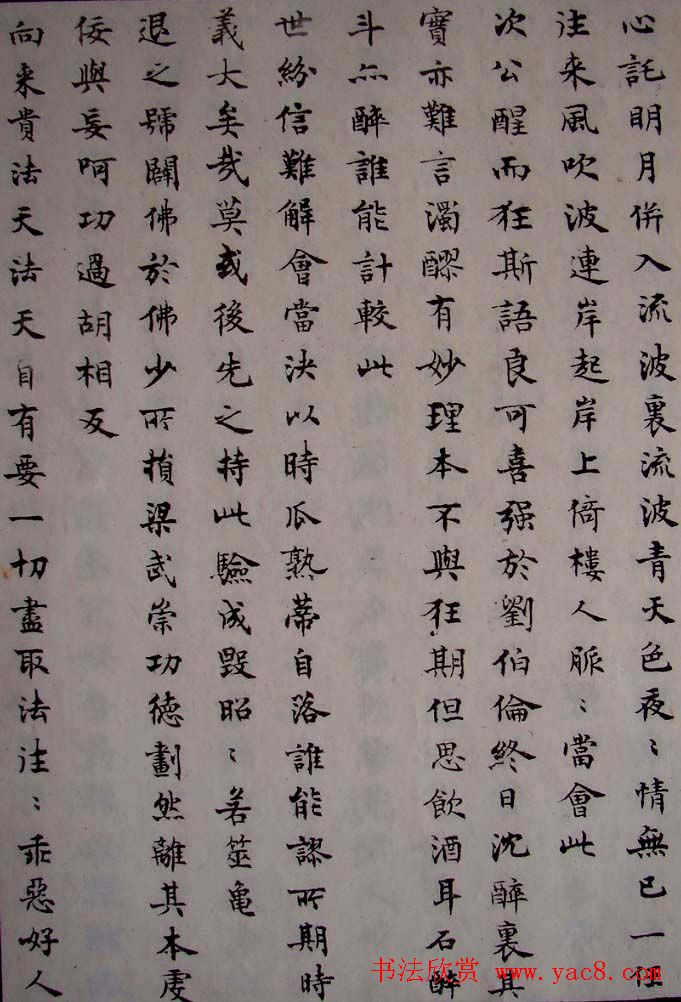 心託明月併入流波裏流波青天色夜〻情無已一任
注来風吹波連岸起岸上倚樓人脈〻當會此
次公醒而狂斯語良可喜强於劉伯倫終日沈醉裏其
實亦難言濁醪有妙理本不與狂期但思飲酒耳石醉
斗亦醉誰能計較此
世紛信難解會當決以時瓜熟蒂自落誰能謬所期時
義大矣哉莫或後先之持此驗成毀昭〻若筮亀
退之號闢佛於佛少所損梁武崇功德劃然離其本虔
佞與妄呵功過胡相反
向来貴法天法天自有要一切盡取法注〻乖惡好人
书法欣赏 www.yac8.com